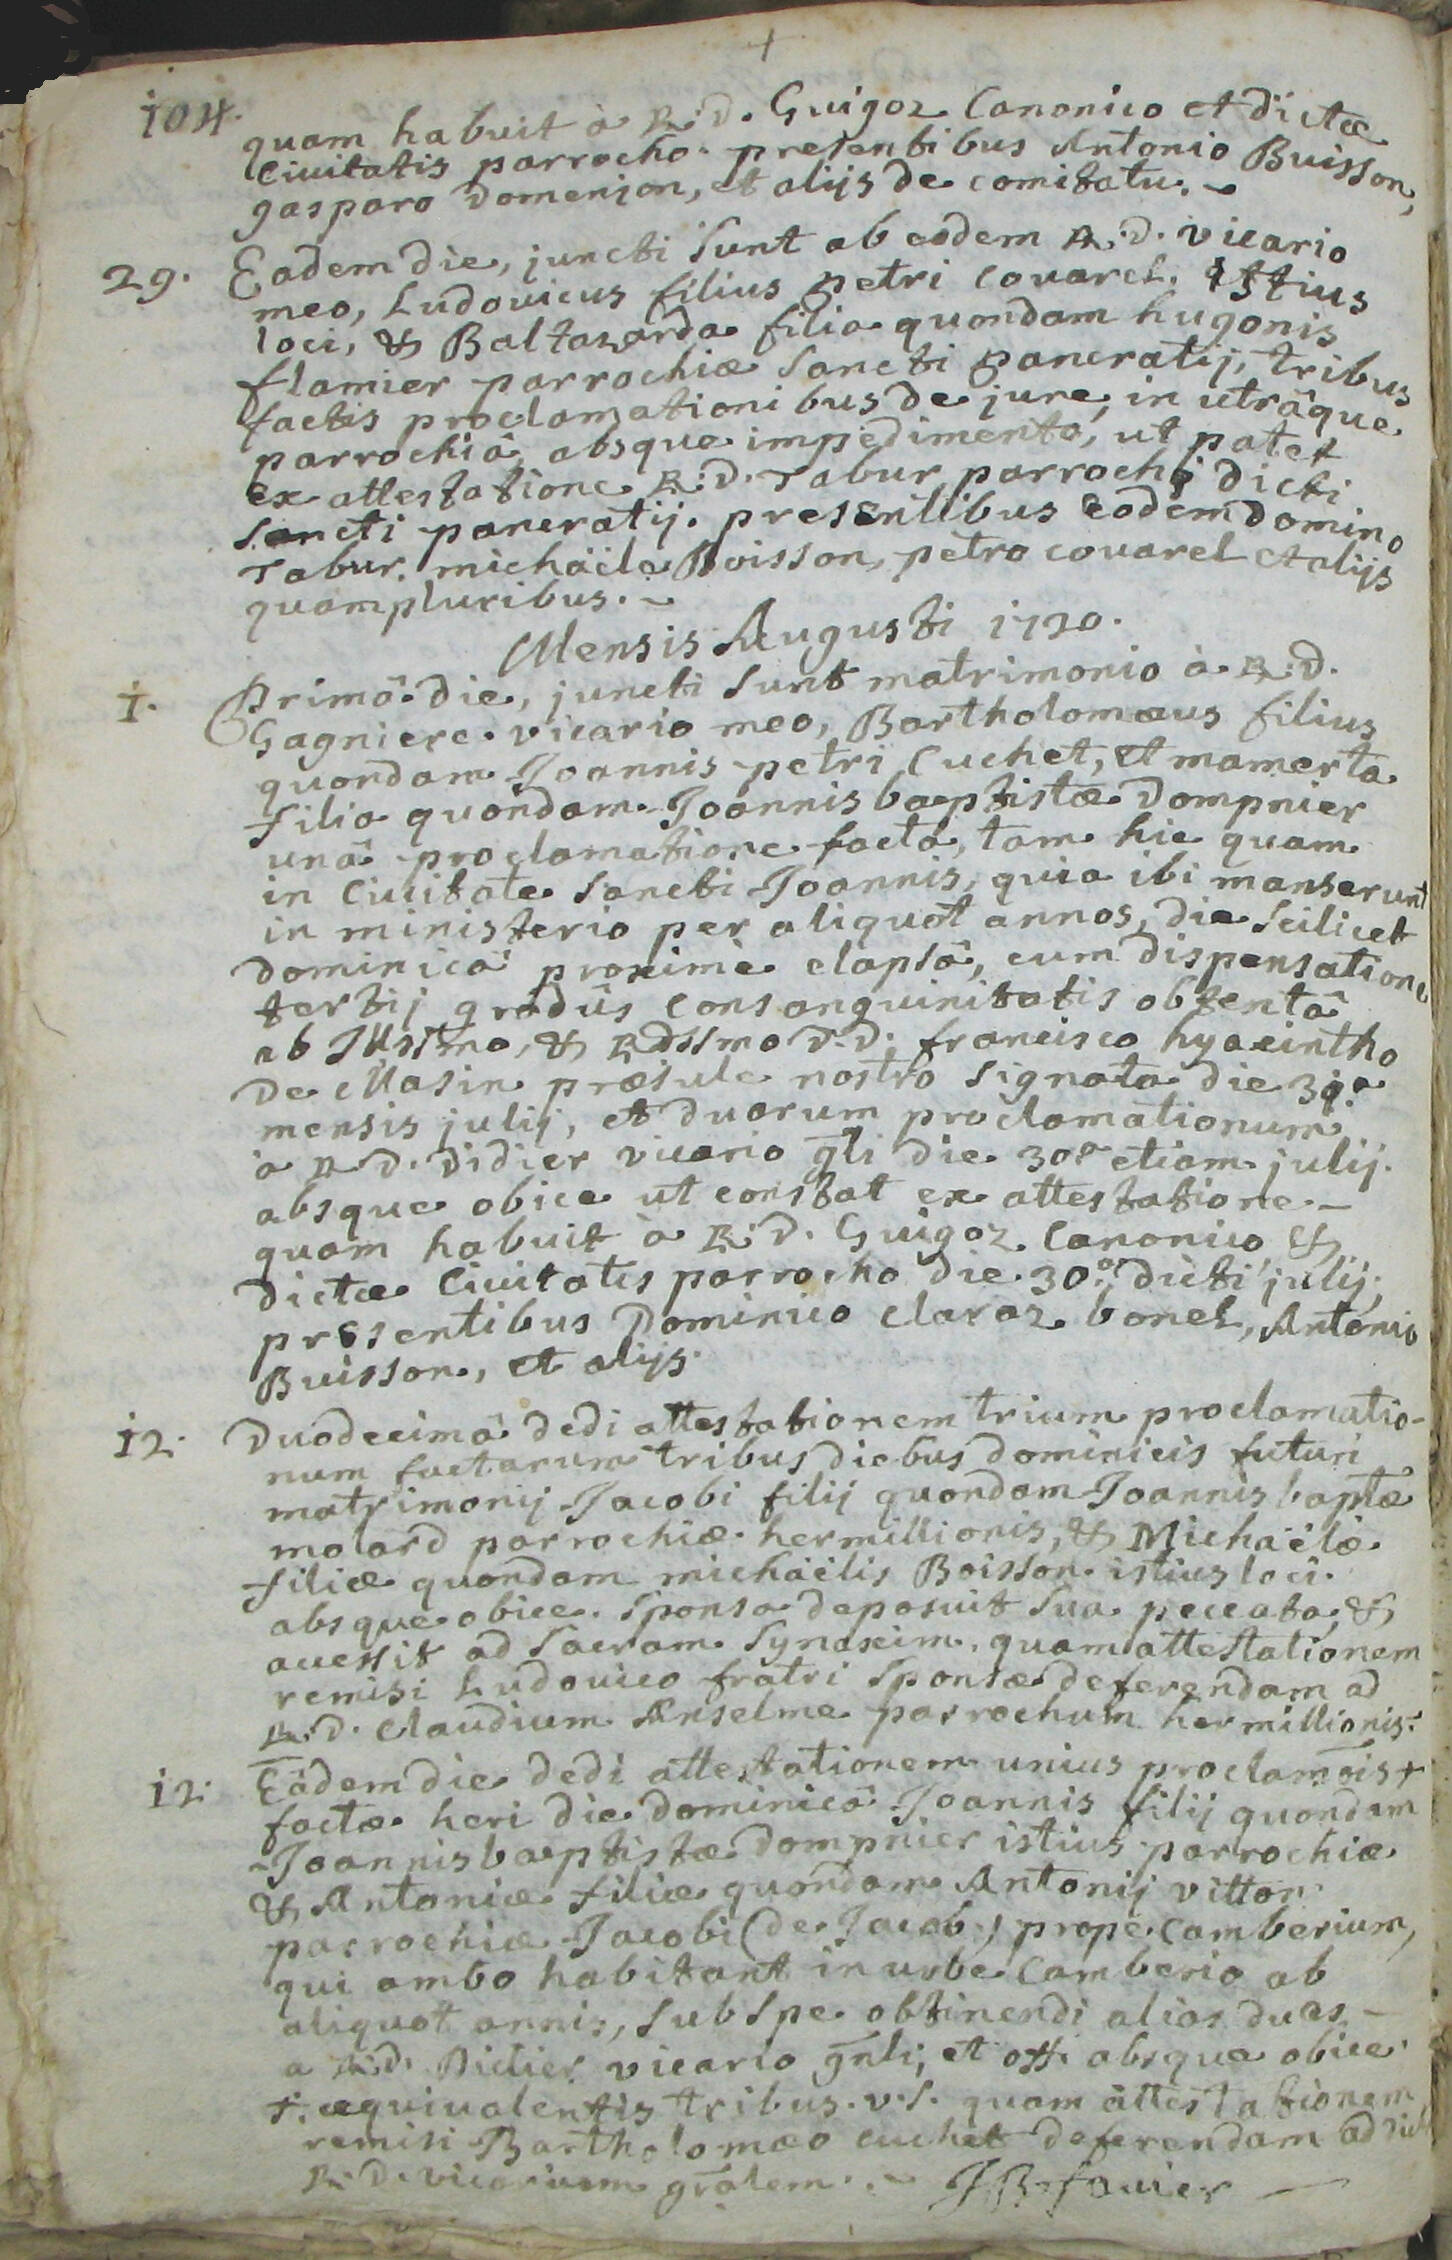 +
104.
quam habuit à R: D. Guigoz Canonico et dictæ
Civitatis parrocho. presentibus Antonio Buisson,
gasparo Domenjon, et alijs de comitatu. –
29. Eadem die, juncti sunt ab eodem R. D. vicario
meo, Ludovicus filius petri covarel. istius
loci, & Baltazarda filia quondam hugonis
flamier parrochiæ sancti pancratij, tribus
factis proclamationibus de jure, in utrâque
parrochiâ, absque impedimento, ut patet
ex attestatione R: D. Tabur parrochi dicti
sancti pancratij. presentibus eodem domino
Tabur. michäele Boisson, petro covarel et alijs
quampluribus. –
Mensis Augusti 1720.
1. Primâ die, juncti sunt matrimonio à R: D.
Gagniere vicario meo, Bartholomæus filius
quondam Joannis petri Cuchet, et mamerta
filia quondam Joannis baptistæ Dompnier
unâ proclamatione facta, tam hic quam
in Civitate sancti Joannis, quia ibi manserunt
in ministerio per aliquot annos, die scilicet
dominicâ proximè elapsâ, cum dispensatione
tertij gradûs consanguinitatis obtentâ
ab Illssmo, & Rdssmo D. D. francisco hyacintho
De Masin præsule nostro signata die 31a
mensis julij, et duarum proclamationum
à R D. Didier vicario gli die 30a etiam julij.
absque obice ut constat ex attestatione –
quam habuit à R: D. Guigoz Canonico &
dictæ Civitatis parrocho die 30a dicti julij,
presentibus Dominico claraz bonel, Antonio
Buisson, et alijs.
12. Duodecimâ dedi attestationem trium proclamatio-
num factarum tribus diebus dominicis futuri
matrimonij Jacobi filij quondam Joannis baptæ
molard parrochiæ hermillionis, & Michaëlæ
filiæ quondam michäelis Boisson istius loci.
absque obice. sponsa deposuit sua peccata, &
accessit ad sacram Synaxim, quam attestationem
remisi Ludovico fratri sponsæ deferendam ad
R. D. Claudium Anselme parrochum hermillionis.
12. Eâdem die dedi attestationem unius proclamois +
factæ heri die dominicâ Joannis filij quondam
Joannis baptistæ Dompnier istius parrochiæ
& Antoniæ filiæ quondam Antonij vittor
parrochiæ Jacobi (de Jacob) prope Camberium,
qui ambo habitant in urbe Camberio ab
aliquot annis, sub spe obtinendi alias duas –
a R. D. Didier vicario gnli, et absque obice
+. æquivalentis tribus. v. s. quam attestationem
remisi Bartholomæo cuchet deferendam ad
R. D. vicarium gralem. – JB favier –